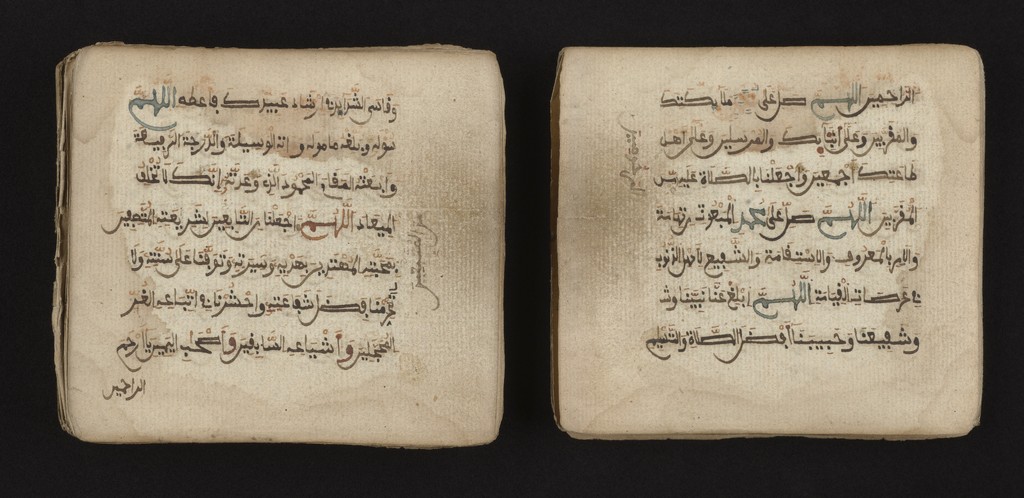 وقاسى الشدايد في ارشاد عبيدك فاعطه اللهم
سوله وبلغه مأموله وءاته الوسيلة والدرجة الرفيعة
وابعثه المقام المحمود الذي وعدته إنك لا تخلف
الميعاد اللهم اجعلنا من التابعين لشريعته المتصفين
بمحبته المهتدين بهديه وسيرته وتوفنا على سنته ولا
تحرمنا فضل شفاعته واحشرنا في اتباعه الغر
المحجلين وأشياعه السابقين وأصحاب اليمين يا أرحم
الراحمين
الراحمين اللهم صل على ملائكتك
والمقربين وعلى أنبيائك والمرسلين وعلى أهل
طاعتك أجمعين واجعلنا بالصلاة عليهم من
المقربين اللهم صل على محمد المبعوث من تهامة
والامر بالمعروف والاستقامة والشفيع لأهل الذنوب
في عرصات القيامة اللهم ابلغ عنا نبينا وش
وشفيعنا وحبيبنا أفضل الصلاة والتسليم